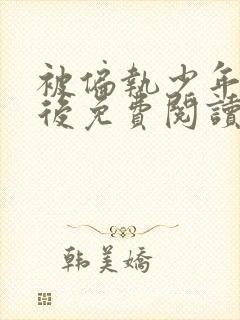 被偏執少年
後免費閱讀
韩美嬌